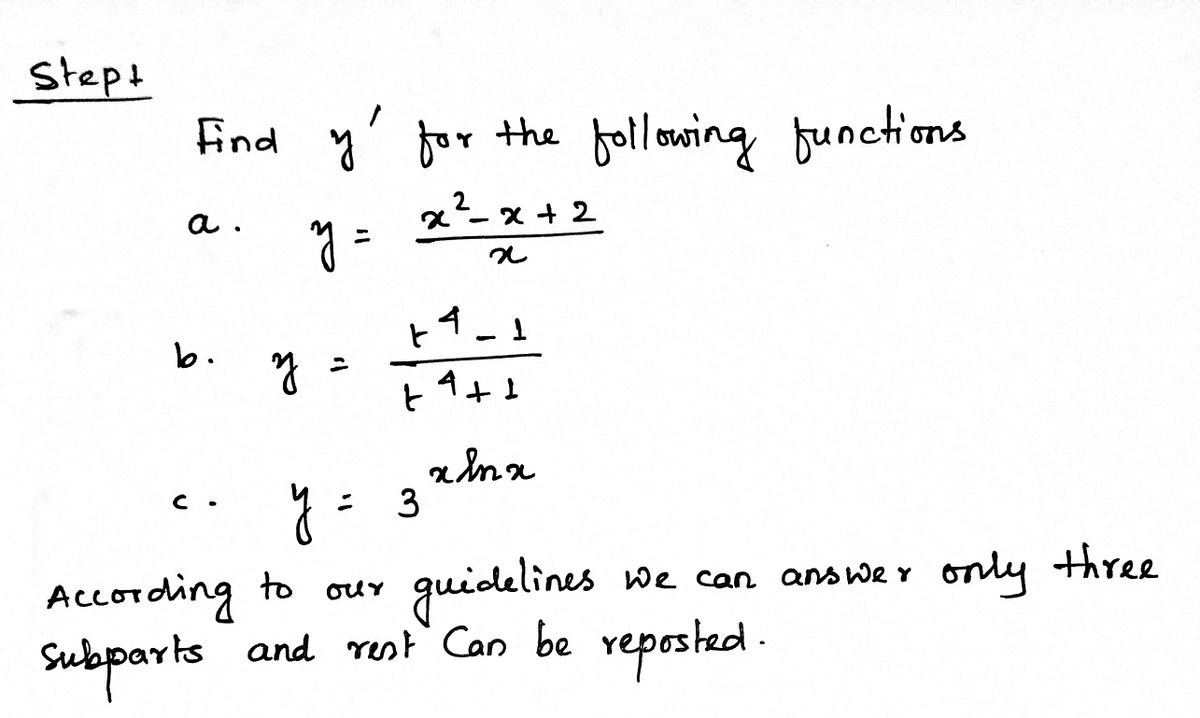 Step1
Find y' for the following functions
a. y = (x² - x + 2)/x
b. y = (t⁴ - 1)/(t⁴ + 1)
c. y = 3^(x ln x)
According to our guidelines we can answer only three
subparts and rest Can be reposted.